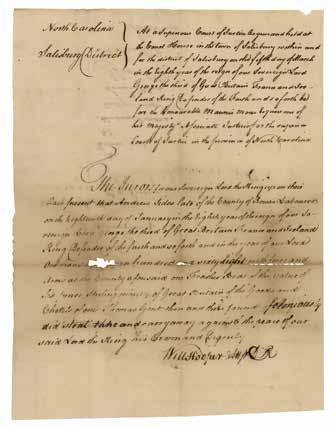 North Carolina
Salisbury District
At a Superior Court of Justice begun and held at
the Court House in the town of Salisbury within and
for the district of Salisbury on the fifth day of March
in the eighth year of the reign of our Sovereign Lord
George the third of Great Britain France and Ire
land King Defender of the Faith and so forth before
the Honourable Maurice Moore Esquire one
of his Majestys Associate Justices for the
Court of Justice in the province of North Carolina
The Jurors for our Sovereign Lord the King upon their
Oath present that Andrew late of the County of Rowan Labourer
on the Eighteenth day of January in the eighth year of the reign of our So
vereign Lord George the third of Great Britain France and Ireland
King Defender of the faith and so forth and in the year of our Lord
One hundred sixty Eight with force and
Arms at the County aforesaid one Feather Bed of the value of
Six pence Sterling money of Great Britain of the Goods and
Chattels of one Thomas then and there found feloniously
did steal take and carry away against the peace of our
said Lord the King his Crown and Dignity
Will Hooper